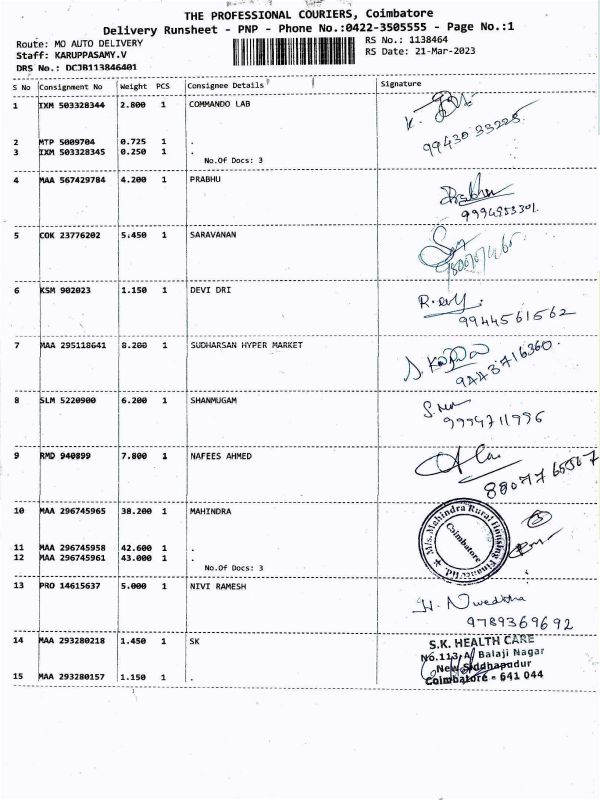 THE PROFESSIONAL COURIERS, Coimbatore
Delivery Runsheet - PNP - Phone No.:0422-3505555 - Page No.:1
Route: MO AUTO DELIVERY RS No.: 1138464
Staff: KARUPPASAMY.V RS Date: 21-Mar-2023
DRS No.: DCJB113846401
S No Consignment No Weight PCS Consignee Details Signature
1 IXM 503328344 2.800 1 COMMANDO LAB
99430 33225
2 MTP 5009704 0.725 1 .
3 IXM 503328345 0.250 1 .
No.Of Docs: 3
4 MAA 567429784 4.200 1 PRABHU
Prabhu
9994953301
5 COK 23776202 5.450 1 SARAVANAN
6 KSM 902023 1.150 1 DEVI DRI
9944561562
7 MAA 295118641 8.200 1 SUDHARSAN HYPER MARKET
9443716360
8 SLM 5220900 6.200 1 SHANMUGAM
9994711996
9 RMD 940899 7.800 1 NAFEES AHMED
10 MAA 296745965 38.200 1 MAHINDRA
M/s. Mahindra Rural Housing Finance Ltd.
Coimbatore
11 MAA 296745958 42.600 1 .
12 MAA 296745961 43.000 1 .
No.Of Docs: 3
13 PRO 14615637 5.000 1 NIVI RAMESH
9789369692
14 MAA 293280218 1.450 1 SK
S.K. HEALTH CARE
No.113,A, Balaji Nagar
New Siddhapudur
Coimbatore - 641 044
15 MAA 293280157 1.150 1 .